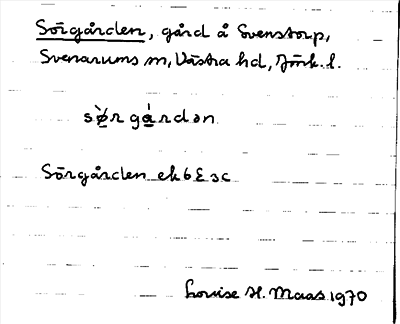 Sörgården, gård å Svenstorp,
Svenarums sn, Västra hd, Jönk. l.
sø̀rgárdən
Sörgården ek 6E 3c
Louise H. Maas 1970